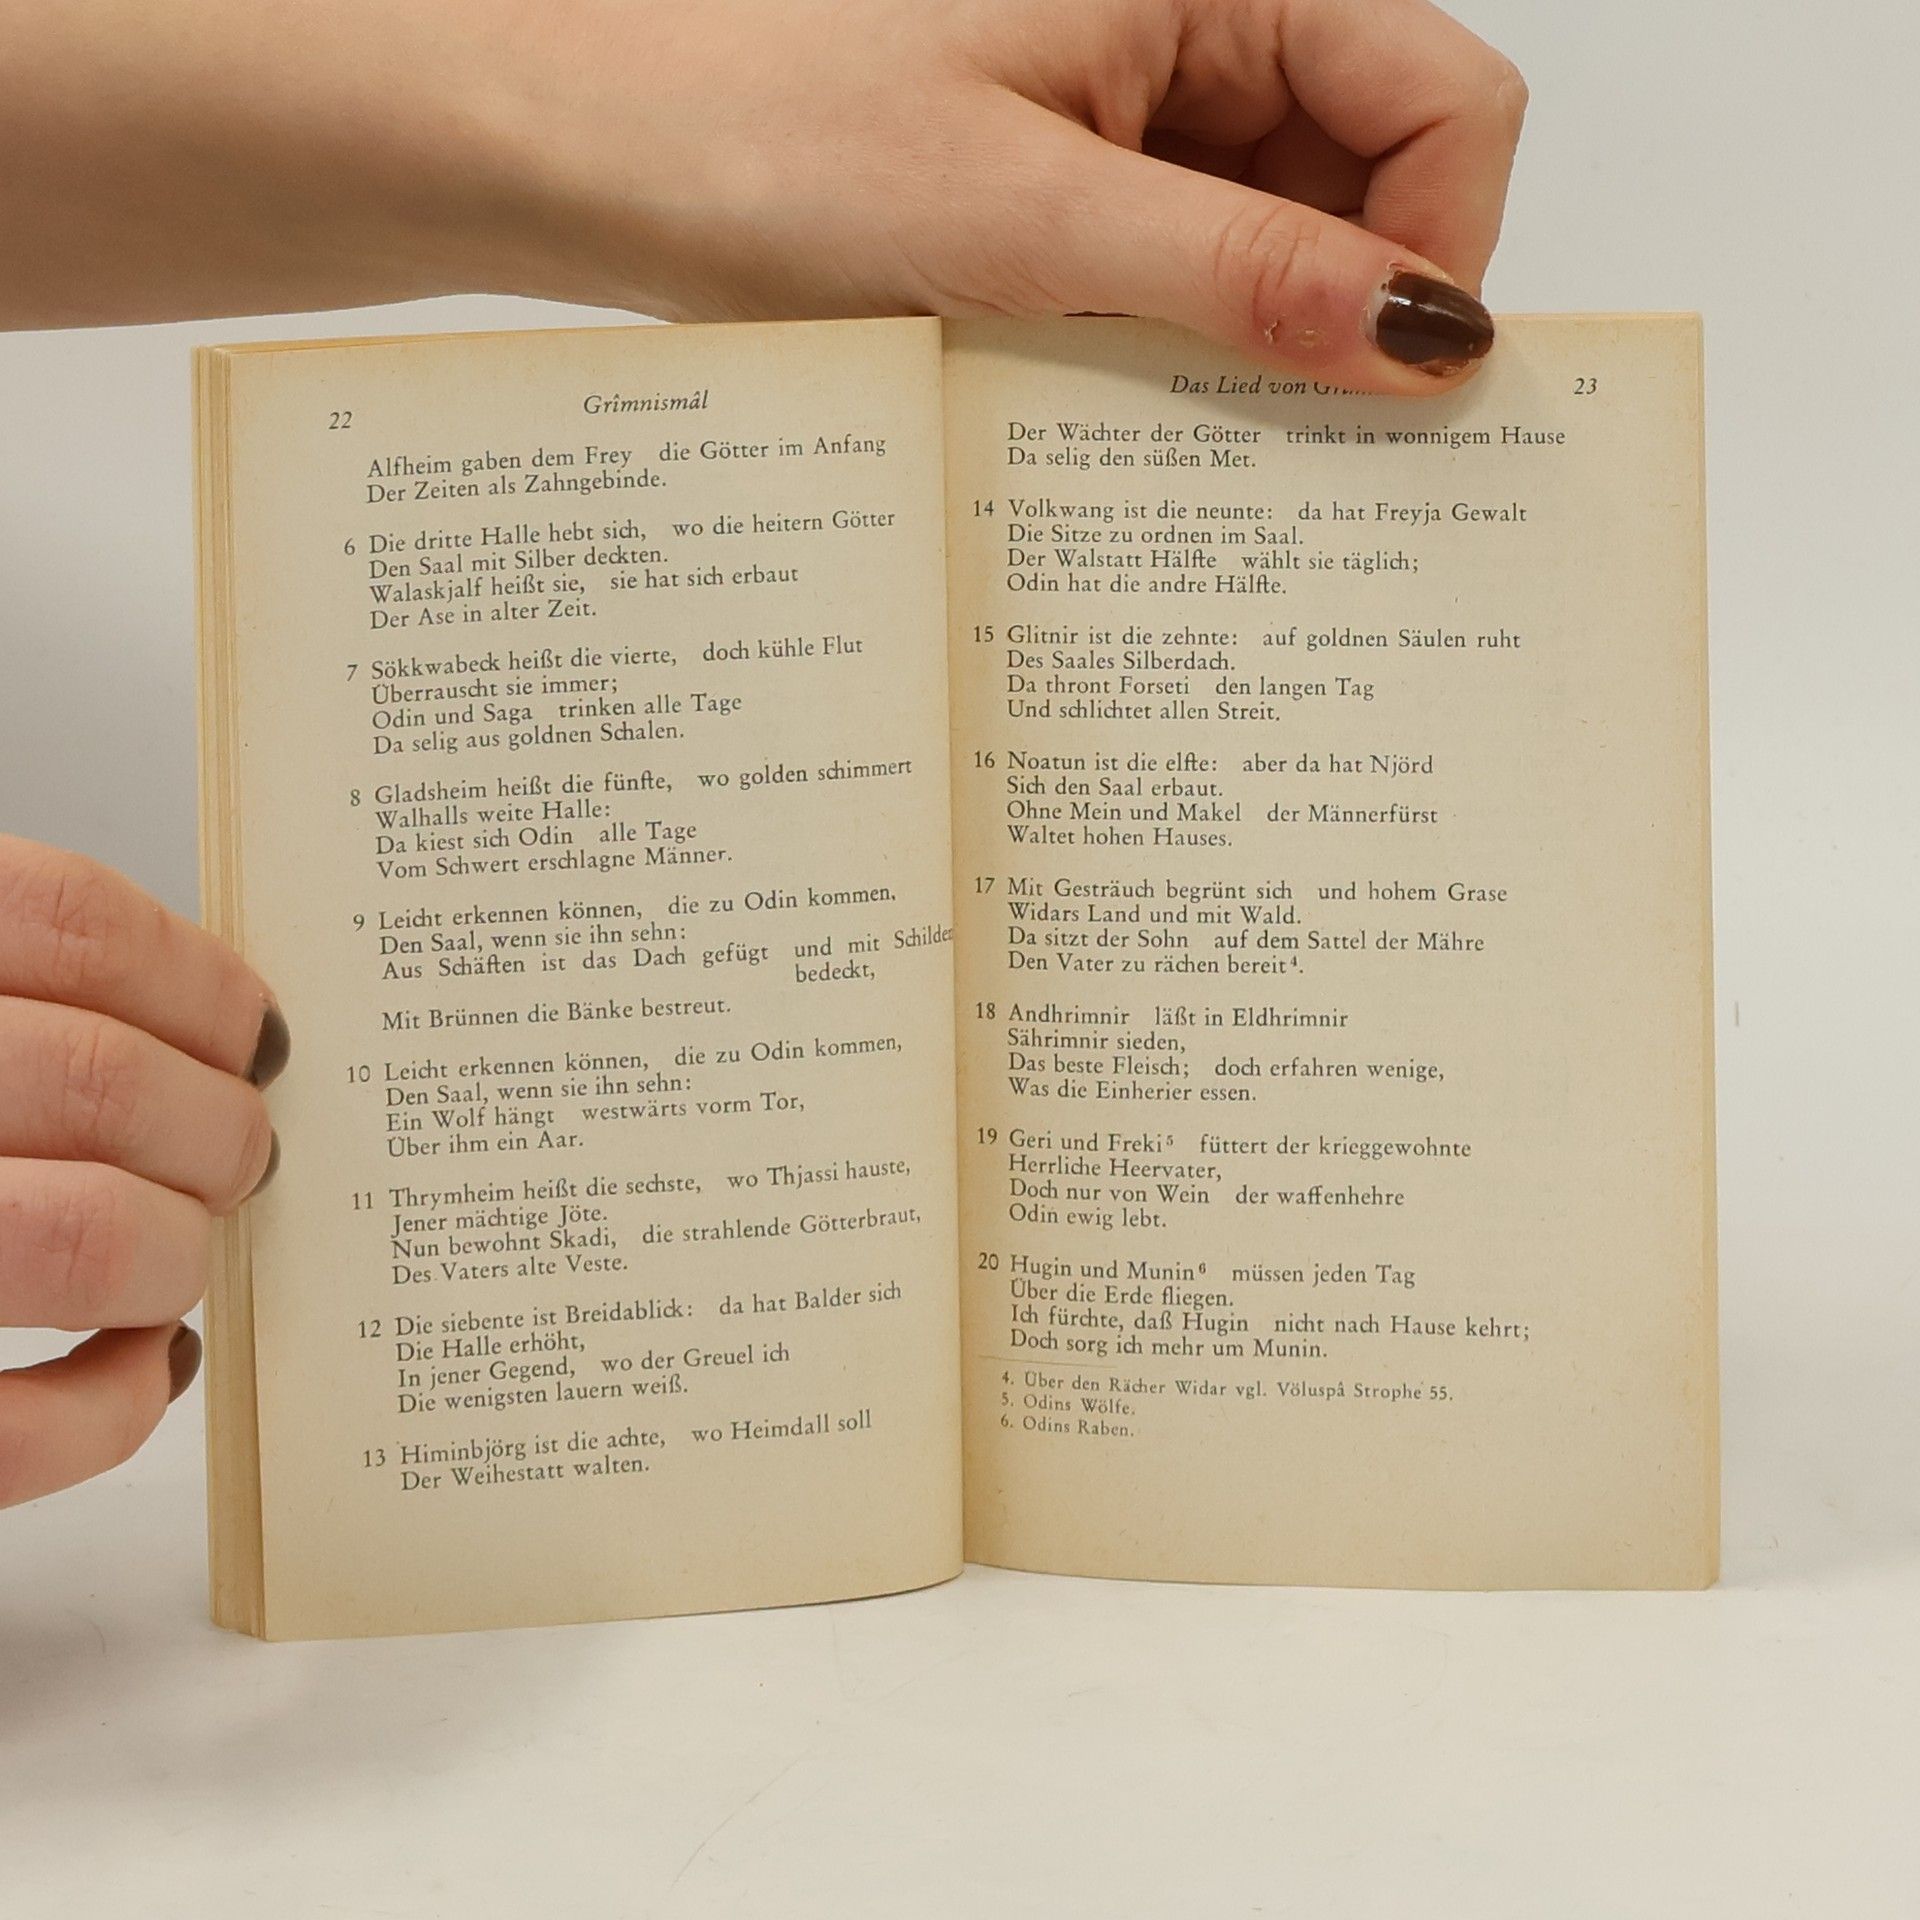 22
Grîmnismâl
Alfheim gaben dem Frey die Götter im Anfang
Der Zeiten als Zahngebinde.
6 Die dritte Halle hebt sich, wo die heitern Götter
Den Saal mit Silber deckten.
Walaskjalf heißt sie, sie hat sich erbaut
Der Ase in alter Zeit.
7 Sökkwabeck heißt die vierte, doch kühle Flut
Überrauscht sie immer;
Odin und Saga trinken alle Tage
Da selig aus goldnen Schalen.
8 Gladsheim heißt die fünfte, wo golden schimmert
Walhalls weite Halle:
Da kiest sich Odin alle Tage
Vom Schwert erschlagne Männer.
9 Leicht erkennen können, die zu Odin kommen,
Den Saal, wenn sie ihn sehn:
Aus Schäften ist das Dach gefügt und mit Schilden
bedeckt,
Mit Brünnen die Bänke bestreut.
10 Leicht erkennen können, die zu Odin kommen,
Den Saal, wenn sie ihn sehn:
Ein Wolf hängt westwärts vorm Tor,
Über ihm ein Aar.
11 Thrymheim heißt die sechste, wo Thjassi hauste,
Jener mächtige Jöte.
Nun bewohnt Skadi, die strahlende Götterbraut,
Des Vaters alte Veste.
12 Die siebente ist Breidablick: da hat Balder sich
Die Halle erhöht,
In jener Gegend, wo der Greuel ich
Die wenigsten lauern weiß.
13 Himinbjörg ist die achte, wo Heimdall soll
Der Weihestatt walten.
Das Lied von
23
Der Wächter der Götter trinkt in wonnigem Hause
Da selig den süßen Met.
14 Volkwang ist die neunte: da hat Freyja Gewalt
Die Sitze zu ordnen im Saal.
Der Walstatt Hälfte wählt sie täglich;
Odin hat die andre Hälfte.
15 Glitnir ist die zehnte: auf goldnen Säulen ruht
Des Saales Silberdach.
Da thront Forseti den langen Tag
Und schlichtet allen Streit.
16 Noatun ist die elfte: aber da hat Njörd
Sich den Saal erbaut.
Ohne Mein und Makel der Männerfürst
Waltet hohen Hauses.
17 Mit Gesträuch begrünt sich und hohem Grase
Widars Land und mit Wald.
Da sitzt der Sohn auf dem Sattel der Mähre
Den Vater zu rächen bereit⁴.
18 Andhrimnir läßt in Eldhrimnir
Sährimnir sieden,
Das beste Fleisch; doch erfahren wenige,
Was die Einherier essen.
19 Geri und Freki⁵ füttert der krieggewohnte
Herrliche Heervater,
Doch nur von Wein der waffenhehre
Odin ewig lebt.
20 Hugin und Munin⁶ müssen jeden Tag
Über die Erde fliegen.
Ich fürchte, daß Hugin nicht nach Hause kehrt;
Doch sorg ich mehr um Munin.
4. Über den Rächer Widar vgl. Völuspâ Strophe 55.
5. Odins Wölfe.
6. Odins Raben.